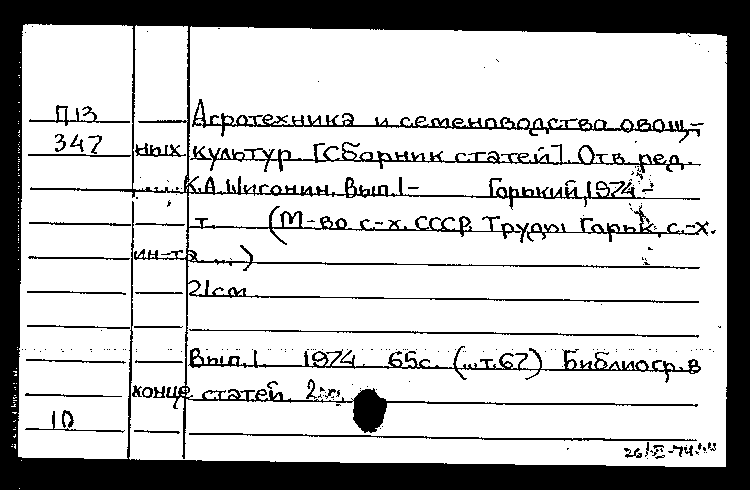 П13 Агротехника и семеноводства овощ-
347 ных культур. [Сборник статей]. Отв. ред.
К.А.Шигонин. Вып.1– Горький, 1974–
т. (М-во с.-х. СССР. Труды Горьк. с.-х.
ин-та ...)
21см
Вып.1. 1974. 65с. (...т.67) Библиогр. в
конце статей.
10